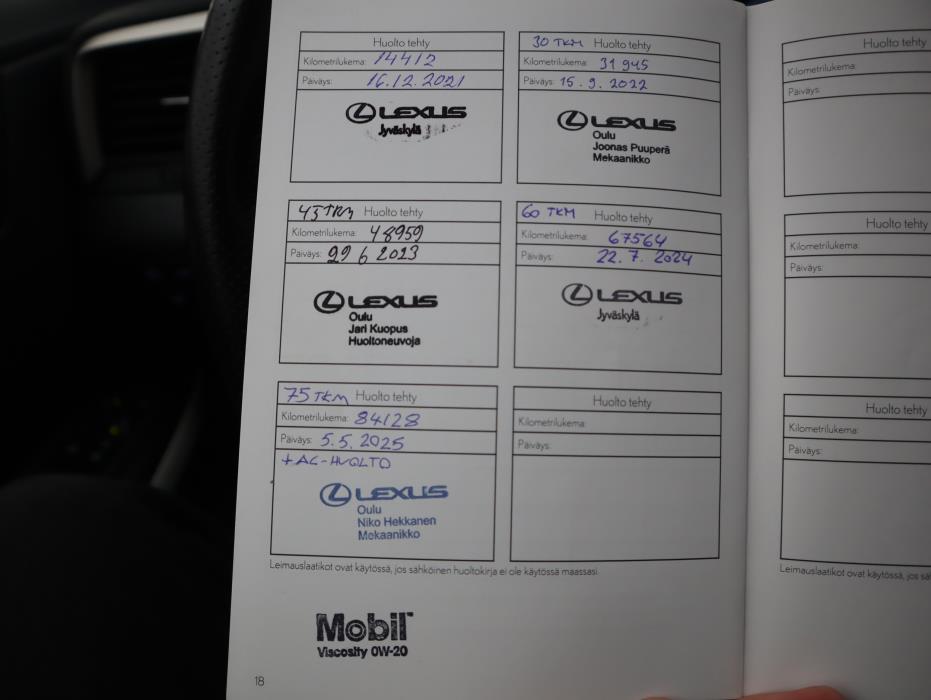 Huolto tehty
Kilometrilukema: 14412
Päiväys: 16.12.2021
LEXUS
Jyväskylä
30 TKM Huolto tehty
Kilometrilukema: 31 945
Päiväys: 15.9.2022
LEXUS
Oulu
Joonas Puuperä
Mekaanikko
45TKM Huolto tehty
Kilometrilukema: 48959
Päiväys: 29 6 2023
LEXUS
Oulu
Jari Kuopus
Huoltoneuvoja
60 TKM Huolto tehty
Kilometrilukema: 67564
Päiväys: 22.7.2024
LEXUS
Jyväskylä
75 TKM Huolto tehty
Kilometrilukema: 84128
Päiväys: 5.5.2025
+AC-HUOLTO
LEXUS
Oulu
Niko Hekkanen
Mekaanikko
Huolto tehty
Kilometrilukema:
Päiväys:
Leimauslaatikot ovat käytössä, jos sähköinen huoltokirja ei ole käytössä maassasi.
Mobil
Viscosity 0W-20
18
Huolto tehty
Kilometrilukema:
Päiväys:
Huolto tehty
Kilometrilukema:
Päiväys:
Huolto tehty
Kilometrilukema:
Päiväys:
Leimauslaatikot ovat käytössä, jos